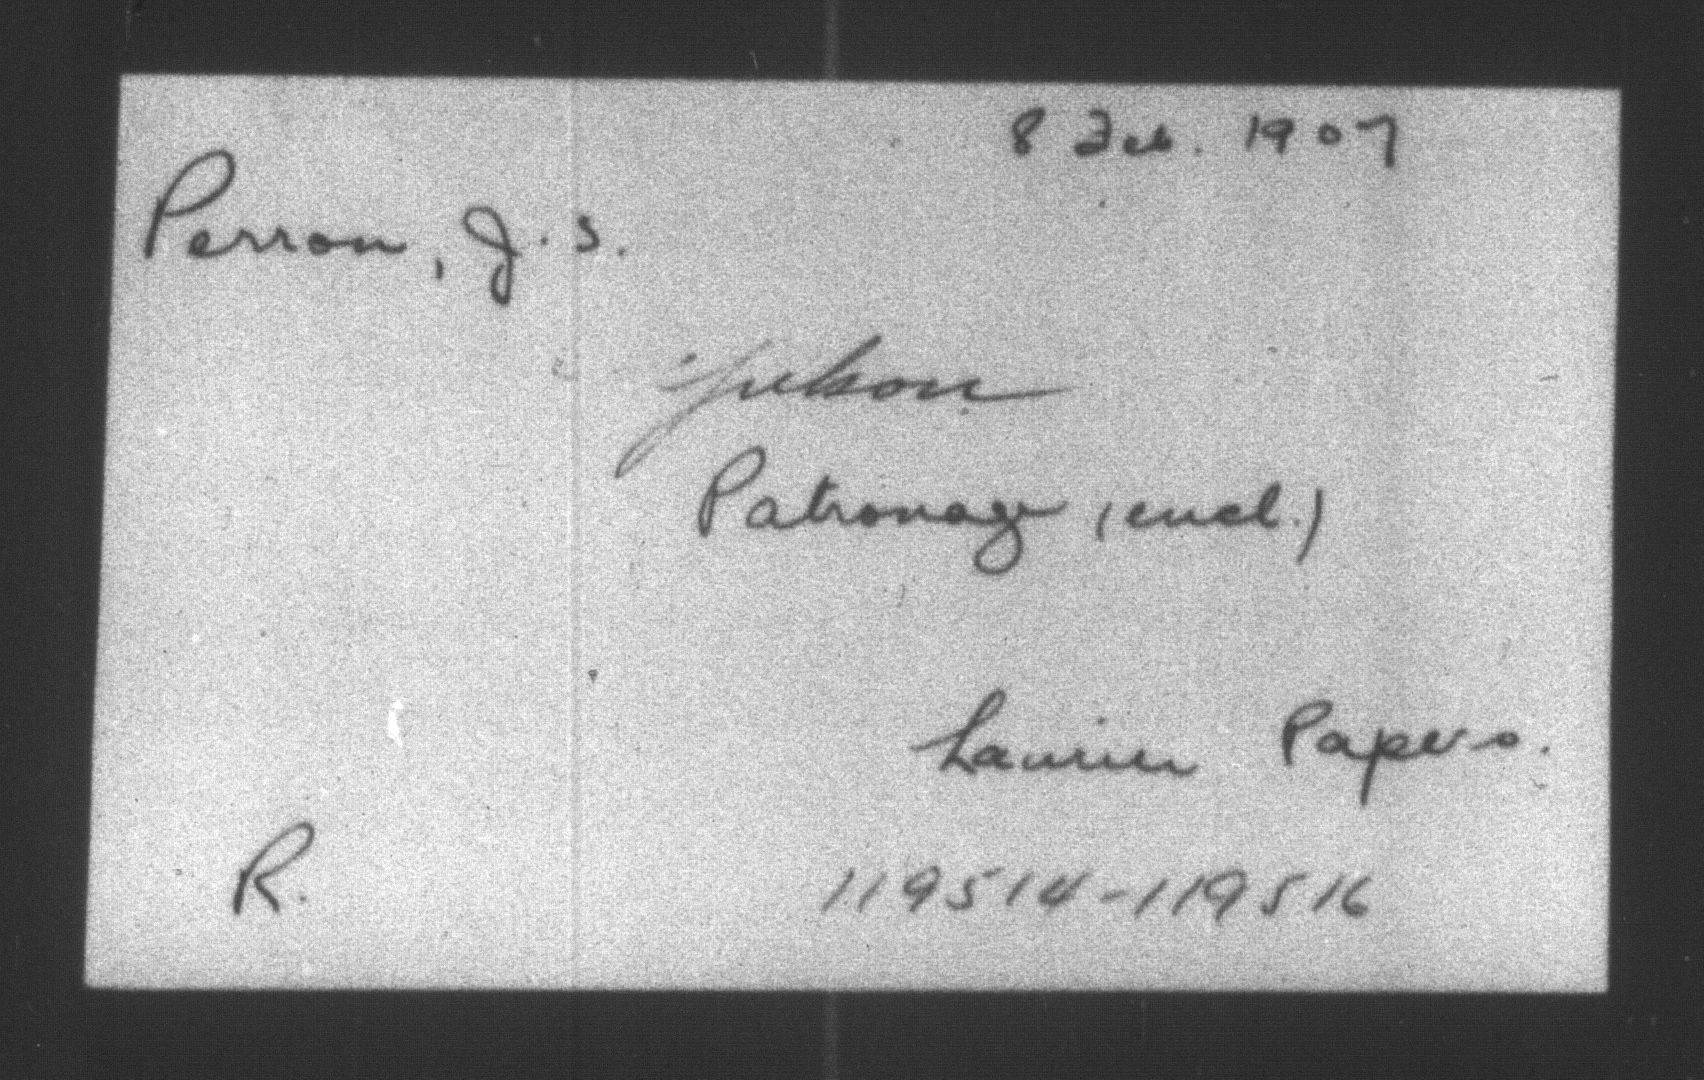 8 Feb. 1907
Perron, J. S.
Yukon
Patronage (encl.)
Laurier Papers.
R.
119514-119516